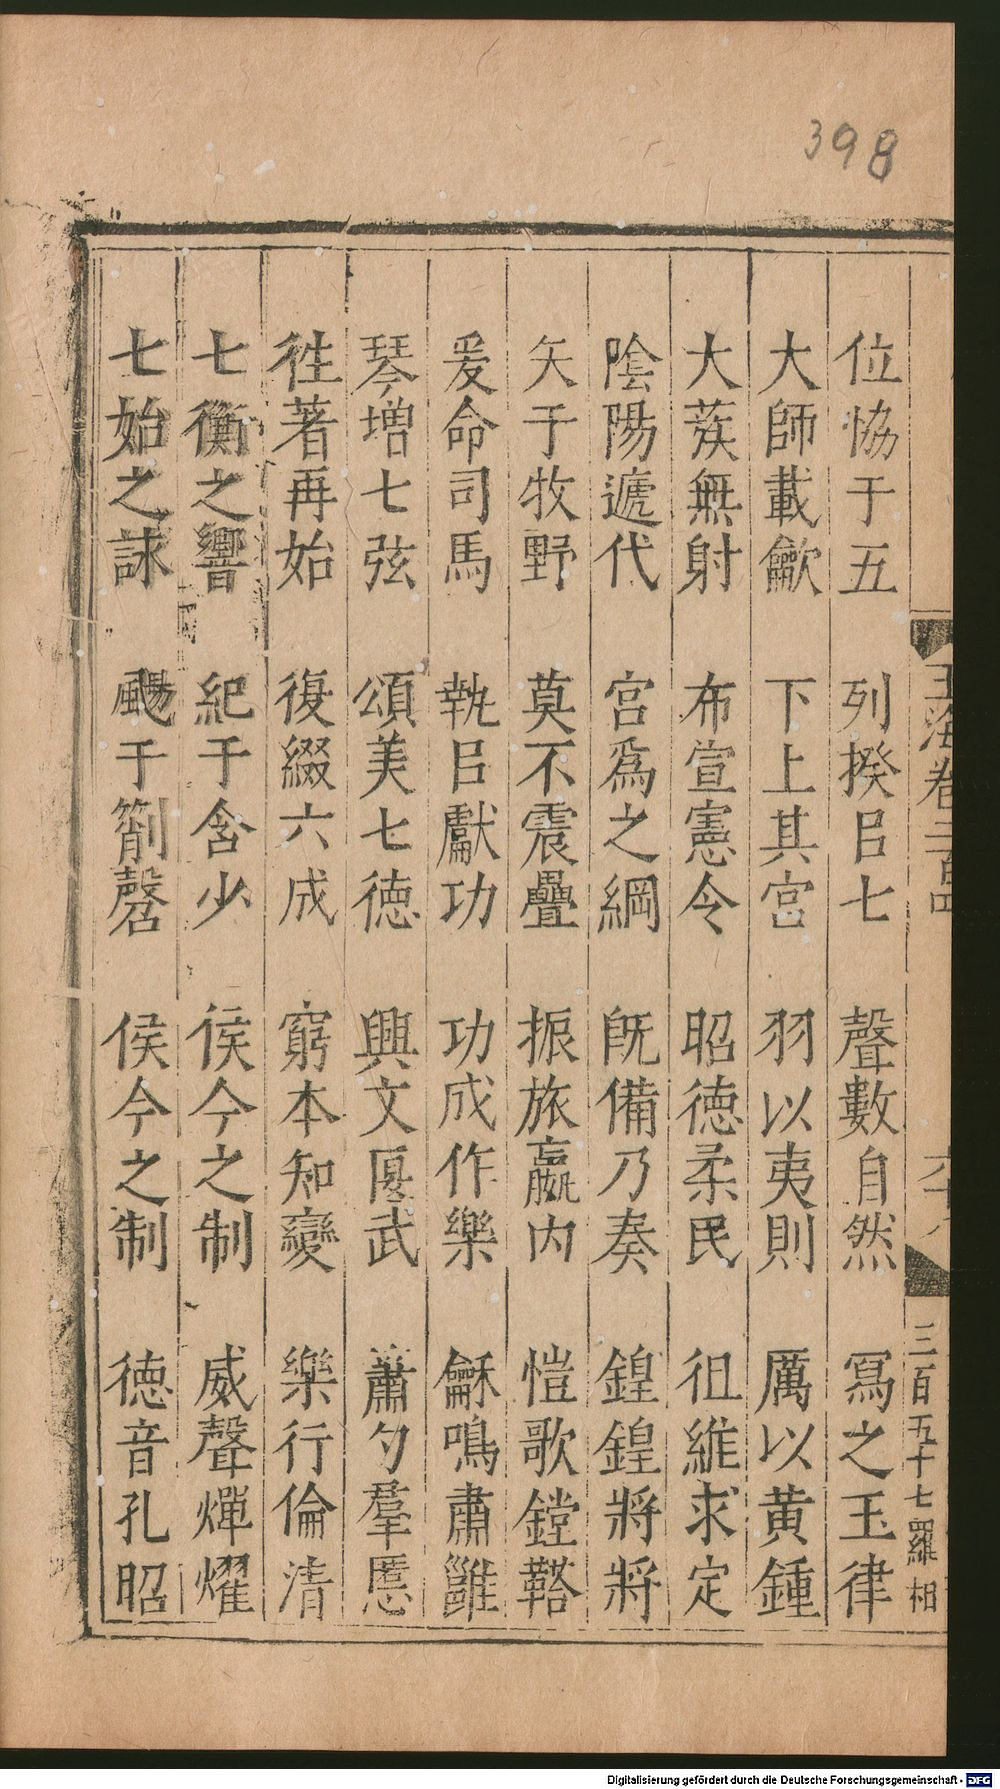 398
位恊于五 列揆㠯七 聲數自然 寫之玉律
大師載龡 下上其宫 羽以夷則 厲以黄鍾
大蔟無射 布宣憲令 昭德柔民 徂維求定
陰陽遞代 宫爲之綱 旣備乃奏 鍠鍠將將
矢于牧野 莫不震疊 振旅嬴内 愷歌鏜鞳
爰命司馬 執㠯獻功 功成作樂 龢鳴肅雝
琴增七弦 頌美七德 興文匽武 簫勺羣慝
徃著再始 復綴六成 窮本知變 樂行倫清
七衡之響 紀于含少 侯今之制 威聲燀燿
七始之詠 颺于箾磬 侯今之制 德音孔昭
玉海卷二百四 六十八 三百五十七羅相
Digitalisierung gefördert durch die Deutsche Forschungsgemeinschaft - DFG